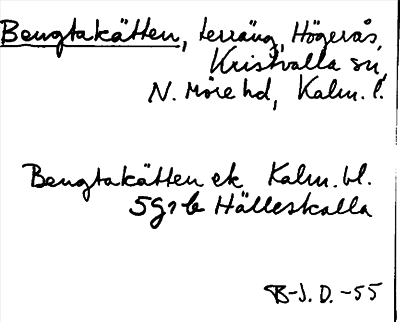 Bengtakätten, terräng, Högerås,
Kristvalla sn,
N. Möre hd, Kalm. l.
Bengtakätten ek. Kalm. bl.
5G7b Hälleskalla
B-J. D. -55